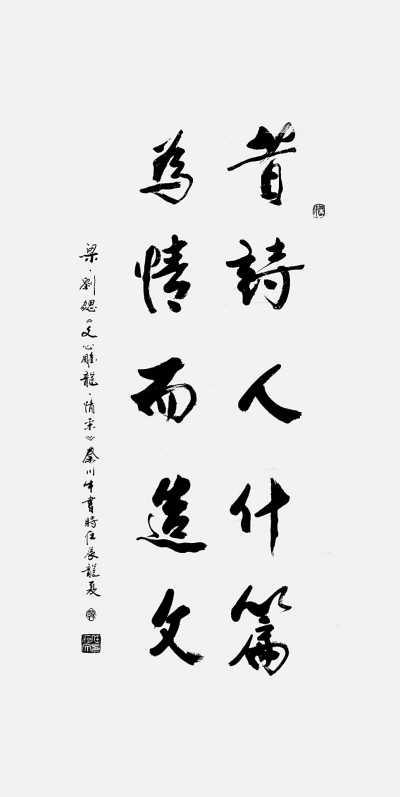 昔詩人什篇
為情而造文
梁·劉勰《文心雕龍·情采》秦川牛書時壬辰龍夏